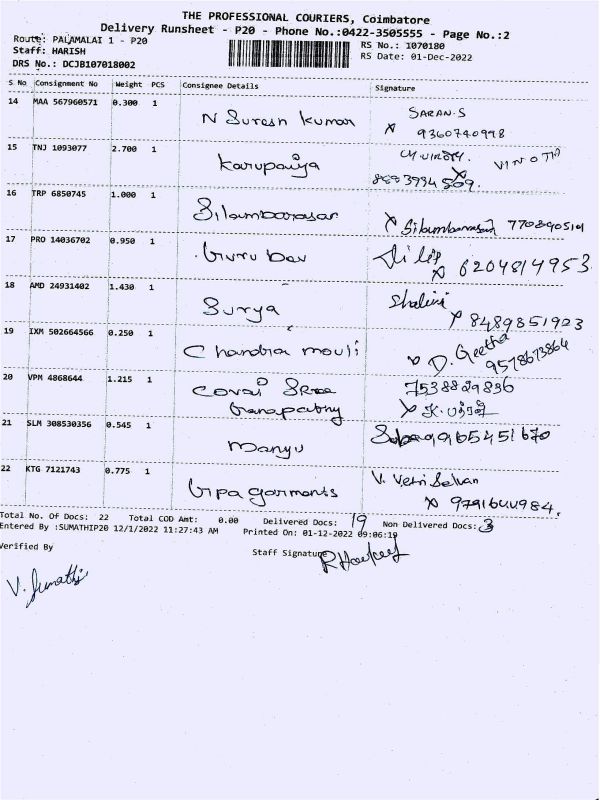 THE PROFESSIONAL COURIERS, Coimbatore
Delivery Runsheet - P20 - Phone No.:0422-3505555 - Page No.:2
Route: PALAMALAI 1 - P20
Staff: HARISH
DRS No.: DCJB107018002
RS No.: 1070180
RS Date: 01-Dec-2022
S No Consignment No Weight PCS Consignee Details Signature
14 MAA 567960571 0.300 1 N Suresh Kumar SARAN.S
X 9360740998
15 TNJ 1093077 2.700 1 Karupaiya VINOTH
16 TRP 6850745 1.000 1 Silambarasan
X Silambarasan 770890519
17 PRO 14036702 0.950 1 Guru Dev Dilip
X 6204814953
18 AMD 24931402 1.430 1 Surya Shalini
X 8489851923
19 IXM 502664566 0.250 1 Chandra mouli D. Geetha
9578673864
20 VPM 4868644 1.215 1 Covai Sree 7538829836
Ganapathy
21 SLM 308530356 0.545 1 Manyu 9965451670
22 KTG 7121743 0.775 1 Gipa garments V. Vetri Selvan
X 9791644984.
Total No. Of Docs: 22 Total COD Amt: 0.00 Delivered Docs: 19 Non Delivered Docs: 3
Entered By :SUMATHIP20 12/1/2022 11:27:43 AM Printed On: 01-12-2022 09:06:19
Verified By Staff Signature
V. Sumathi